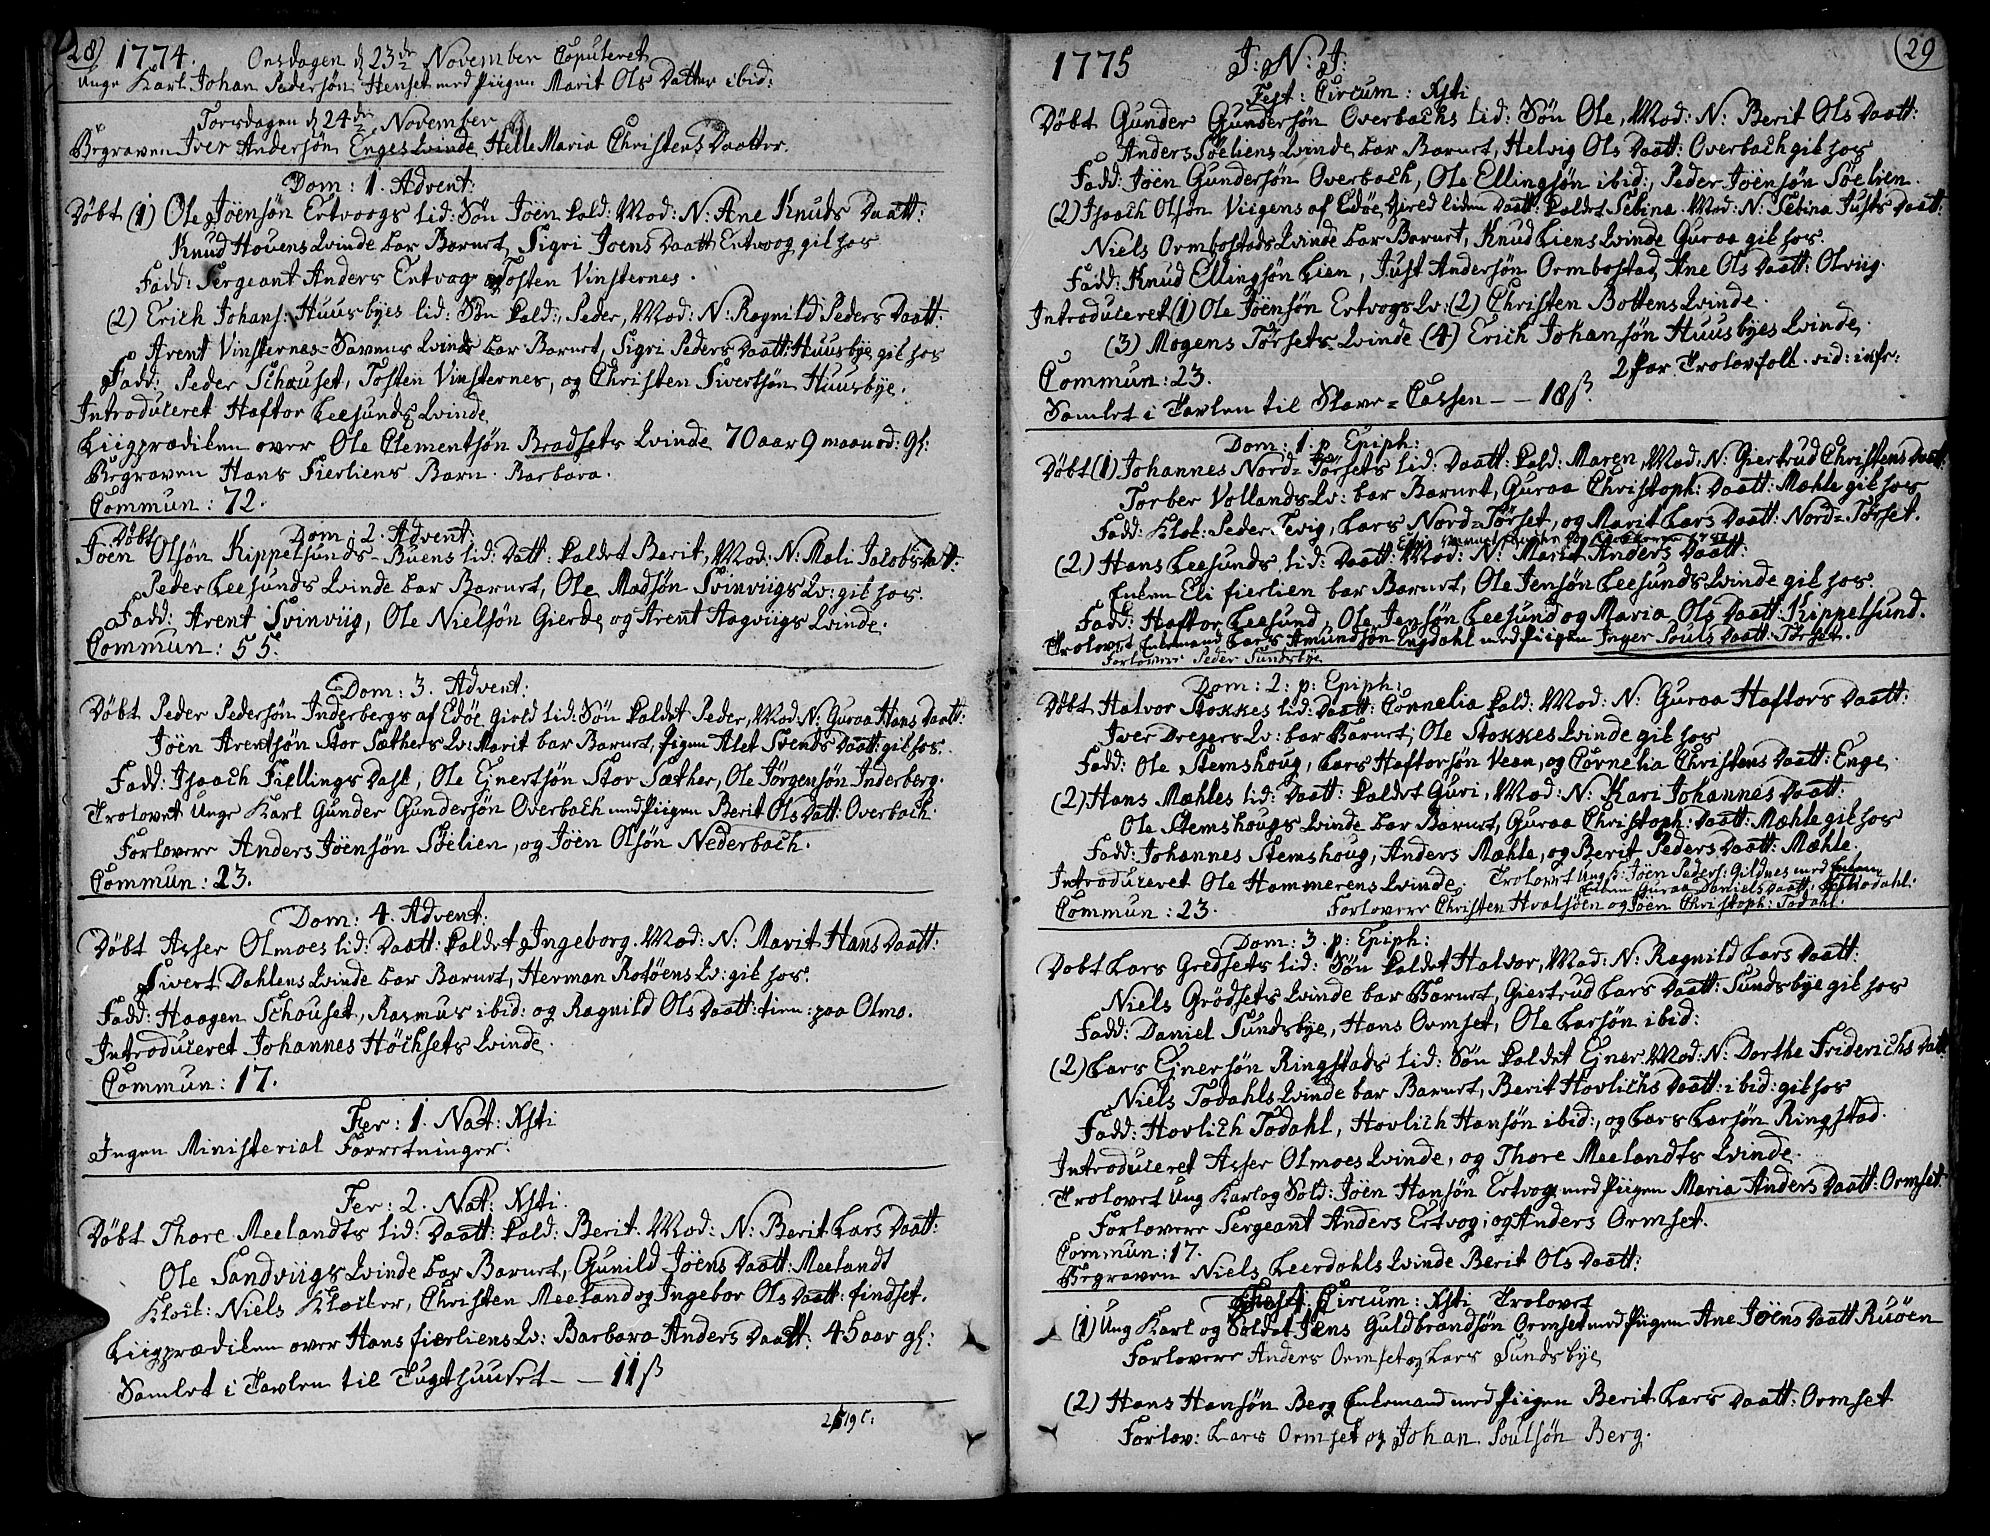 28) 1774. Onsdagen d 23de November Copuleret
Unge Karl Johan Pedersøn Henset med Piigen Marit Ols Datter ibid:
Torsdagen d 24de November
Begraven Iver Andersøn Enges Qvinde Helle Maria Christens Daatter.
Dom: 1. Advent:
Døbt (1) Ole Jöensøn Ertvoogs lid: Søn Jöen kald: Mod: N: Ane Knuds Daatt:
Knud Hovens Qvinde bar Barnet, Sigri Joens Daatt: Ertvoog gik hos
Fadd: Sergeant Anders Ertvog og Tosten Vinsternes.
(2) Erich Johans: Huusbyes lid: Søn kald: Peder, Mod: N: Ragnild Peders Daatt:
Arent Vinsternes-Savens Qvinde bar Barnet, Sigri Peders Daatt: Huusbye gik hos
Fadd: Peder Schauset, Tosten Vinsternes, og Christen Sivertsøn Huusbye.
Introduceret Haftor Leesunds Qvinde
Liigprædiken over Ole Clementsøn Bradsets Qvinde 70 aar 9 maaned: gl:
Begraven Hans Fierliens Barn Barbara.
Commun: 72.
Dom: 2. Advent:
Døbt
Jöen Olsøn Kippelsunds-Buens lid: Datt: kaldet Berit, Mod: N: Mali Jacobs Datt:
Peder Leesunds Qvinde bar Barnet, Ole Madsøn Svinviigs Qv: gik hos.
Fadd: Arent Svinviig, Ole Nielsøn Gierde og Arent Aagviigs Qvinde.
Commun: 55.
Dom: 3. Advent:
Døbt Peder Pedersøn Inderbergs af Edöe Gield lid: Søn kaldet Peder, Mod: N: Guroa Hans Daatt:
Jöen Arentsøn Stor Sæthers Qv: Marit bar Barnet, Pigen Alet Svends Daatt: gik hos.
Fadd: Isaach Fiellings Dahl, Ole Ejnertsøn Stor Sæther, Ole Jörgensøn Inderberg.
Trolovet Unge Karl Gunder Gundersøn Overbach med Piigen Berit Ols Datt: Overbach.
Forlovere Anders Jöensøn Söelien, og Jöen Olsøn Nederbach.
Commun: 23.
Dom: 4. Advent:
Døbt Asser Olmoes lid: Daatt: kaldet Ingeborg. Mod: N: Marit Hans Daatt:
Sivert Dahlens Qvinde bar Barnet, Herman Rotöens Qv: gik hos.
Fadd: Haagen Schouset, Rasmus ibid: og Ragnild Ols Daatt: tien: paa Olmo.
Introduceret Johannes Höchsets Qvinde.
Commun: 17.
Fer: 1. Nat: Xsti
Ingen Ministerial Forretninger.
Fer: 2. Nat: Xsti.
Døbt Thore Meelandts lid: Daatt: kald: Berit. Mod: N: Berit Lars Daatt:
Ole Sandviigs Qvinde bar Barnet, Gunild Jöens Daatt: Meelandt
Klock: Niels Klocker, Christen Meeland og Ingebor Ols Daatt: findset.
Liigprædiken over Hans fierliens Qv: Barbara Anders Daatt: 45 aar gl:
Samlet i Tavlen til Tugthuuset - - 11 ß
1775 J: N: J: 29
Fest: Circum: Xsti
Døbt Gunder Gundersøn Overbachs lid: Søn Ole, Mod: N: Berit Ols Daatt:
Anders Söeliens Qvinde bar Barnet, Helvig Ols Daatt: Overbach gik hos
Fadd: Jöen Gundersøn Overbach, Ole Ellingsøn ibid:, Peder Jöensøn Söelien.
(2) Isaach Olsøn Viigens af Edöe Gield liden Daatt: kaldet Sebina. Mod: N: Sebina Justs Daatt:
Niels Ormbostads Qvinde bar Barnet, Knud Liens Qvinde Guroa gik hos.
Fadd: Knud Ellingsøn Lien, Just Andersøn Ormbostad, Ane Ols Daatt: Olviig.
Introduceret (1) Ole Jöensøn Ertvogs Qv: (2) Christen Bottens Qvinde.
(3) Mogens Törsets Qvinde (4) Erich Johansøn Huusbyes Qvinde.
Commun: 23. 2 Par Trolovfolk. vid: infr:
Samlet i Tavlen til Slave-Cassen - - 18 ß
Dom: 1. p Epiph:
Døbt (1) Johannes Nord-Törsets lid: Daatt: kald: Maren, Mod: N: Giertrud Christens Daatt:
Torber Vollands Qv: bar Barnet, Guroa Christoph: Daatt: Mæhle gik hos
Fadd: Klok: Peder Tevig, Lars Nord-Törset, og Marit Lars Daatt: Nord-Törset.
(2) Hans Leesunds lid: Daatt: Mod: N: Marit Anders Daatt:
Enken Eli fierlien bar Barnet, Ole Jensøn Leesunds Qvinde gik hos.
Fadd: Haftor Leesund, Ole Jensøn Leesund og Maria Ols Daatt: Kippelsund.
Trolovet Enkemand Lars Amundsøn Engdahl med Piigen Inger Pouls Daatt: Törset.
Forlovere Peder Sundsbye
Dom: 2: p: Epiph:
Døbt Halvor Stokkes lid: Daatt: Cornelia kald: Mod: N: Guroa Haftors Daatt:
Iver Dregers Qv: bar Barnet, Ole Stokkes Qvinde gik hos
Fadd: Ole Stemshoug, Lars Haftorsøn Veen, og Cornelia Christens Daatt: Enge.
(2) Hans Mæhles lid: Daatt: kaldet Guri, Mod: N: Kari Johannes Daatt:
Ole Stemshougs Qvinde bar Barnet, Guroa Christoph: Daatt: Mæhle gik hos
Fadd: Johannes Stemshoug, Anders Mæhle, og Berit Peders Daatt: Mæhle.
Introduceret Ole Hammerens Qvinde. Trolovet Ung K: Jöen Peders: Gildnes med
Enken Guroa Daniels Daatt: Todahl.
Commun: 23. Forlovere Christen Hvalsöen og Jöen Christoph: Todahl.
Dom: 3. p: Epiph:
Døbt Lars Gredsets lid: Søn kaldet Halvor, Mod: N: Ragnild Lars Daatt:
Niels Grödsets Qvinde bar Barnet, Giertrud Lars Daatt: Sundsbye gik hos
Fadd: Daniel Sundsbye, Hans Ormset, Ole Larsøn ibid:
(2) Lars Ejnersøn Ringstads lid: Søn kaldet Ejner. Mod: N: Dorthe Friderichs Datt
Niels Todahls Qvinde bar Barnet, Berit Hovlichs Daatt: ibid: gik hos
Fadd: Hovlich Todahl, Hovlich Hansøn ibid:, og Lars Larsøn Ringstad.
Introduceret Asser Olmoes Qvinde, og Thore Meelandts Qvinde.
Trolovet Ung Karl og Sold: Jöen Hansøn Ertvog med Piigen Maria Anders Daatt: Ormset.
Forlovere Sergeant Anders Ertvog, og Anders Ormset.
Commun: 17.
Begraven Niels Leerdahls Qvinde Berit Ols Daatt:
Circum: Xsti Trolovet
(1) Ung Karl og Soldat Jens Guldbrandsøn Ormset med Piigen Ane Jöens Daatt Ruöen
Forlovere Anders Ormset og Lars Sundsbye
(2) Hans Hansøn Berg Enkemand med Piigen Berit Lars Daatt: Ormset
Forlov: Lars Ormset og Johan Poulsøn Berg.